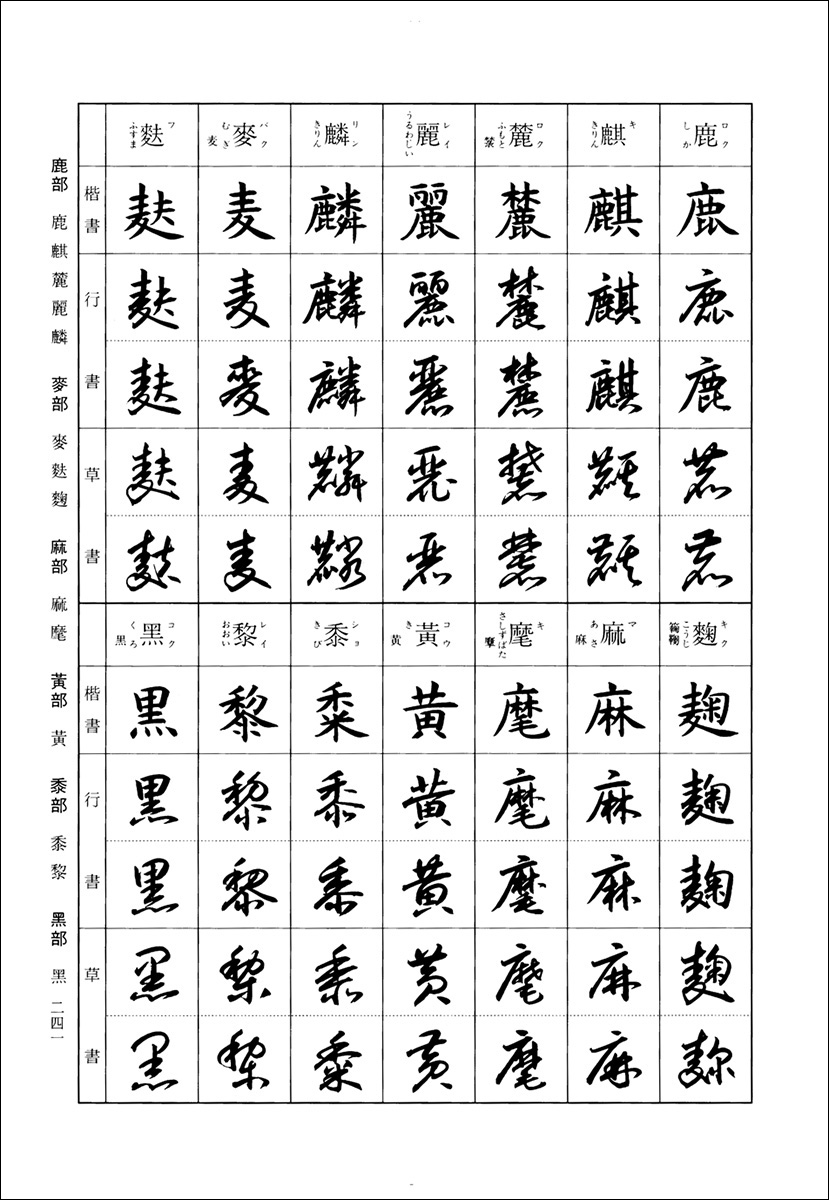 鹿 ロク しか
麒 キ きりん
麓 ロク ふもと 禁
麗 レイ うるわしい
麟 リン きりん
麥 バク むぎ 麦
麩 フ ふすま
楷書
鹿 麒 麓 麗 麟 麦 麩
行書
鹿 麒 麓 麗 麟 麦 麩
鹿 麒 麓 麗 麟 麥 麩
草書
鹿 麒 麓 麗 麟 麦 麩
鹿 麒 麓 麗 麟 麦 麩
麴 キク こうじ
麻 マ あさ 麻
麾 キ さしずばた
黃 コウ き 黄
黍 ショ きび
黎 レイ おおい
黑 コク くろ 黒
楷書
麹 麻 麾 黄 黍 黎 黒
行書
麹 麻 麾 黄 黍 黎 黒
麹 麻 麾 黄 黍 黎 黒
草書
麹 麻 麾 黄 黍 黎 黒
麹 麻 麾 黄 黍 黎 黒
鹿部 鹿 麒 麓 麗 麟 麥部 麥 麩 麴 麻部 麻 麾 黃部 黃 黍部 黍 黎 黑部 黑 二四一